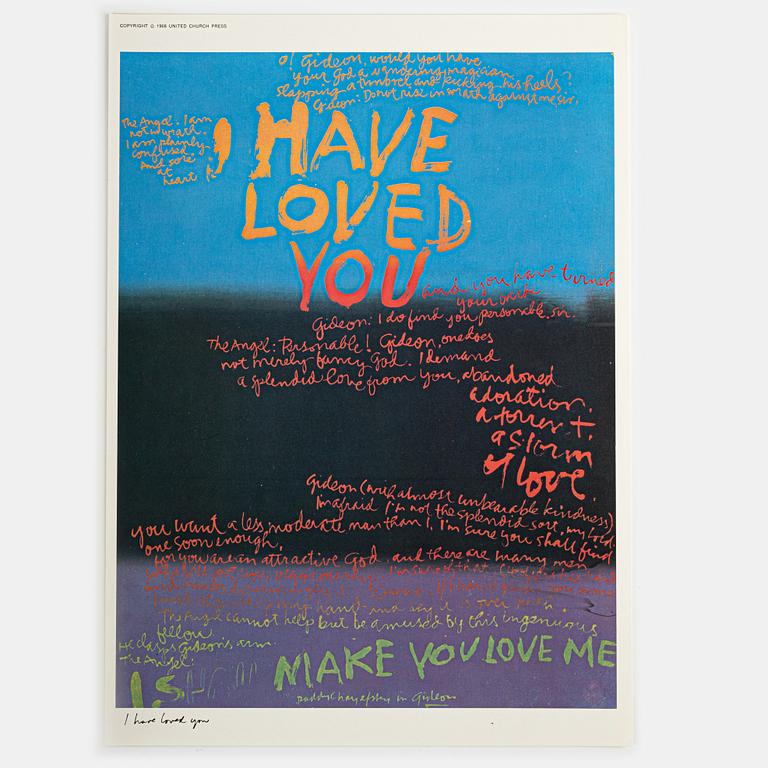 COPYRIGHT © 1966 UNITED CHURCH PRESS
O! Gideon, would you have
your God a wandering magician,
slapping a timbrel and kicking his heels?
Gideon: Do not rise in wrath against me sir.
The Angel: I am
not in wrath.
I am plainly
confused.
And sore
at
heart
I HAVE
LOVED
YOU
and you have turned
your back
Gideon: I do find you personable, sir.
The Angel: Personable! Gideon, one does
not merely fancy God. I demand
a splendid love from you, abandoned
adoration,
a torrent,
a storm
of love.
Gideon (with almost unbearable kindness)
I'm afraid I'm not the splendid sort, my Lord.
you want a less moderate man than I, I'm sure you shall find
one soon enough,
for you are an attractive God and there are many men
The Angel cannot help but be amused by this ingenuous
fellow
He clasps Gideon's arm
The Angel:
I SHALL
MAKE YOU LOVE ME
paddy chayefsky in Gideon
I have loved you